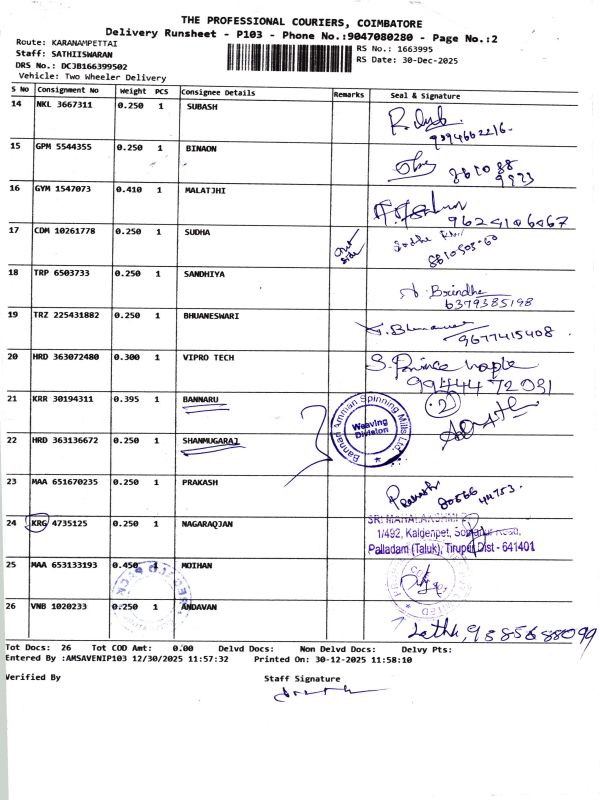 THE PROFESSIONAL COURIERS, COIMBATORE
Delivery Runsheet - P103 - Phone No.:9047080280 - Page No.:2
Route: KARANAMPETTAI
Staff: SATHIISWARAN
DRS No.: DCJB166399502
Vehicle: Two Wheeler Delivery
RS No.: 1663995
RS Date: 30-Dec-2025
S No Consignment No Weight PCS Consignee Details Remarks Seal & Signature
14 NKL 3667311 0.250 1 SUBASH
15 GPM 5544355 0.250 1 BINAON
16 GYM 1547073 0.410 1 MALATJHI
9624106067
17 CDM 10261778 0.250 1 SUDHA out side
18 TRP 6503733 0.250 1 SANDHIYA
Brindha
6379385198
19 TRZ 225431882 0.250 1 BHUANESWARI
9677415408
20 HRD 363072480 0.300 1 VIPRO TECH
9944472031
21 KRR 30194311 0.395 1 BANNARU
2
Bannari Amman Spinning Mills Ltd.
Weaving Division
22 HRD 363136672 0.250 1 SHANMUGARAJ
23 MAA 651670235 0.250 1 PRAKASH
24 KRG 4735125 0.250 1 NAGARAQJAN
1/492, Kalgenpet,
Palladam (Taluk), Tirupur Dist - 641401
25 MAA 653133193 0.450 1 MOIHAN
26 VNB 1020233 0.250 1 ANDAVAN
Tot Docs: 26 Tot COD Amt: 0.00 Delvd Docs: Non Delvd Docs: Delvy Pts:
Entered By :AMSAVENIP103 12/30/2025 11:57:32 Printed On: 30-12-2025 11:58:10
Verified By Staff Signature